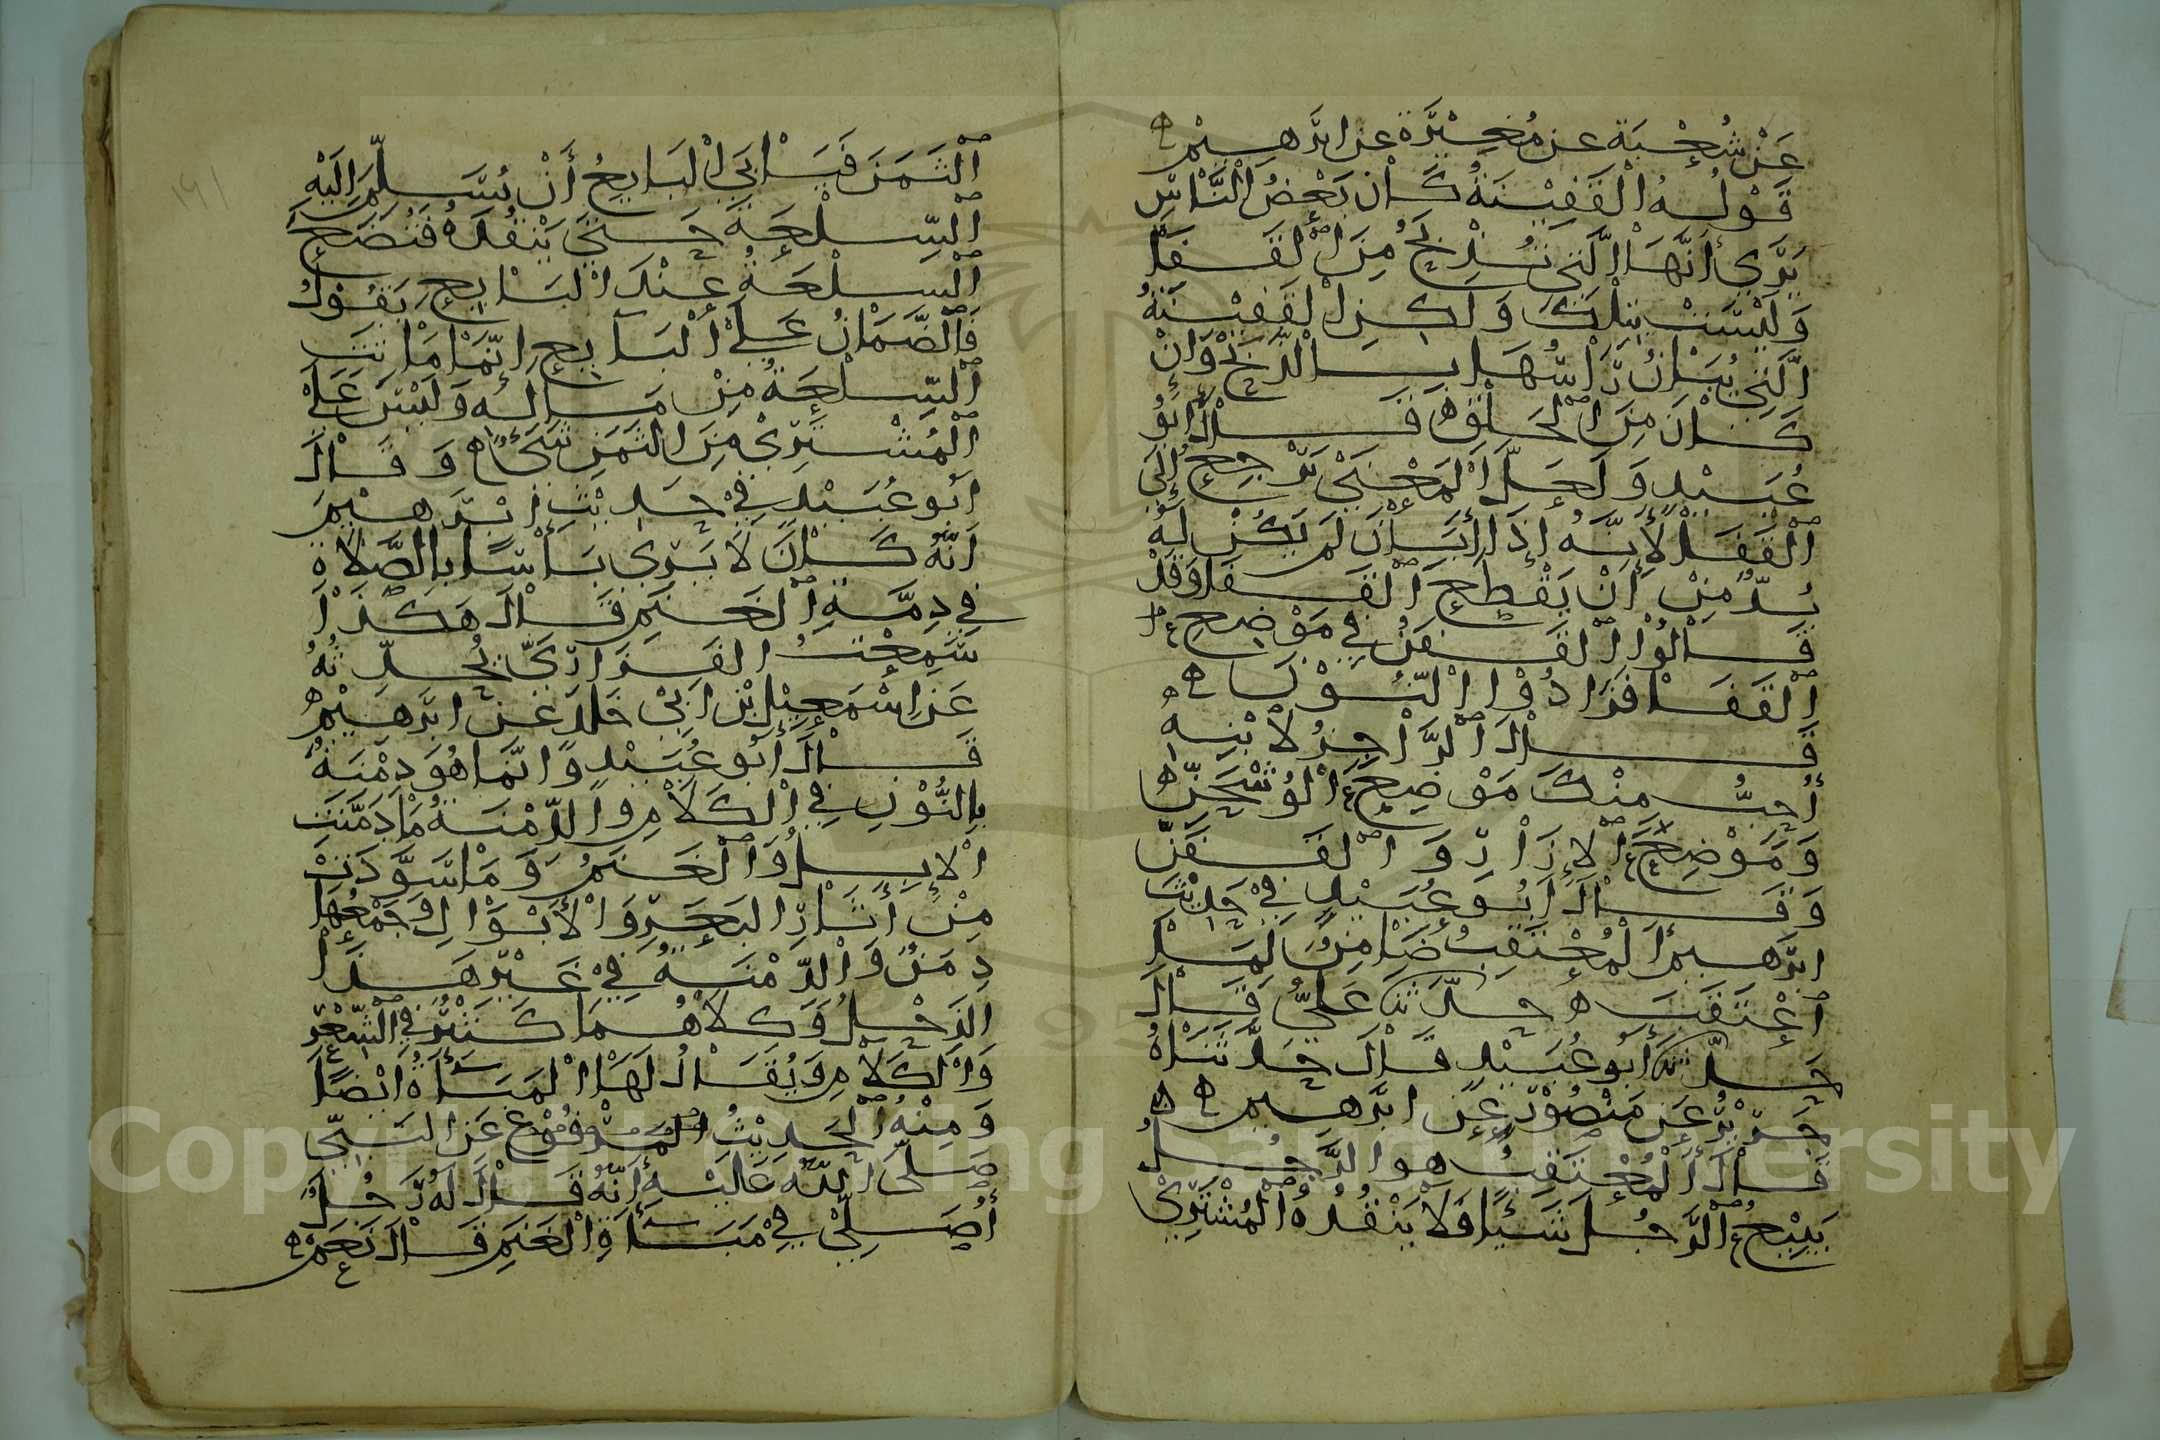 عَنْ شُعْبَةَ عن مُغِيْرَةَ عن ابرَهِيْمَ ه
قَوْلُهُ الْقَفِيْنَةُ كَانَ بَعْضُ النَّاسِ
يَرَى أَنَّهَا الَّتِى تُذْبَحُ مِنَ الْقَفَا
وَلَيْسَتْ بِتِلْكَ وَلَكِنِ الْقَفِيْنَةُ
الَّتِي يُبَانُ رَأْسُهَا بِالذَّبْحِ وَانْ
كَانَ مِنَ الْحَلْقِ ه قَالَ أَبُو
عُبَيْدٍ وَلَعَلَّ الْمَعْنَى يَرْجِعُ إِلَى
الْقَفَا لِأَنَّهُ إِذَا أَبَانَ لَمْ يَكُنْ لَهُ
بُدٌّ مِنْ أَنْ يَقْطَعَ الْقَفَا وَقَدْ
قَالُوْا الْقَفَنُّ فِي مَوْضِعِ
الْقَفَا فَزَادُوْا النُّوْنَ ه
قَالَ الرَّاجِزُ لِابْنِهِ
أُحِبُّ مِنْكَ مَوْضِعَ الْوُشْحَنِّ ه
وَمَوْضِعَ الْإِزَارِ وَالْقَفَنِّ
وَقَالَ أَبُو عُبَيْدٍ فِيْ حَدِيْثِ
ابرَهِيمَ الْمُعْتَقِبُ ضَامِنٌ لِمَا
اعْتَقَبَ ه حدّثنا عَلِيٌّ قَالَ
حَدّثنا أَبُو عُبَيْدٍ قَالَ حَدَّثَنَاهُ
جَرِيْرٌ عَنْ مَنْصُوْرٍ عَنْ ابرَهِيمَ ه ه
قَالَ الْمُعْتَقِبُ هو الرَّجُلُ
يَبِيْعُ الرَّجُلَ شَيْئًا فَلَا يَنْقُدُهُ الْمُشْتَرِيْ
الْثَمَنَ فَيَابَى الْبَايِعُ أَنْ يُسَلِّمَ اِلَيْهِ
الْسِّلْعَةَ حَتَّى يَنْقُدَهُ فَتَضِيْعُ
الْسِلْعَةُ عِنْدَ الْبَايِعِ يَقُوْلُ
فَالْضَّمَانُ عَلَى الْبَايِعِ اِنَّمَا مَاتَتِ
الْسِّلْعَةُ مِنْ مَالِهِ وَلَيْسَ عَلَى
الْمُشْتَرِىْ مِنَ الثَمَنِ شَىْءٌ ه وَقَالَ
اَبُو عُبَيْدٍ فِيْ حَدِيْثِ ابْرَهِيْمَ
أَنَّهُ كَانَ لَا يَرَى بَأْسًا بِالصَّلَاةِ
فِي دِمَّةِ الْغَنَمِ قَالَ هَكَذَا
سَمِعْتُ الفَزَارِيَّ يُحَدِّثُهُ
عَنْ اِسْمَعِيْلَ بْنِ ابِىْ خَالِدٍ عَنْ ابرَهِيْمَ ه
قَالَ أَبُو عُبَيْدٍ وَانَّمَا هُوَ دِمْنَةُ
بِالنُّوْنِ فِي الْكَلَامِ وَالدِّمْنَةُ مَا دَمَّنَتِ
الْإِبِلُ وَالْغَنَمُ وَمَا سَوَّدَتْ
مِنْ أَثَارِ الْبَعَرِ وَالْأَبْوَالِ وَجَمْعُهَا
دِمَنٌ وَالدِّمْنَةُ فِيْ غَيْرِ هَذَا
الذَحْلُ وَكِلَاهُمَا كَثِيْرٌ فِي الْشِّعْرِ
وَالْكَلَامِ وَيُقَالُ لَهَا الْمَبَاءَةُ أَيْضًا
وَمِنْهُ الْحَدِيْثُ الْمَرْفُوْعُ عَنِ النَّبِيِّ
صَلَّى اللهُ عَلَيْهِ أَنَّهُ قَالَ لَهُ رَجُلٌ
أُصَلِّيْ فِيْ مَبَاءَةِ الْغَنَمِ قَالَ نَعَمْ ه
Copyright © King Saud University